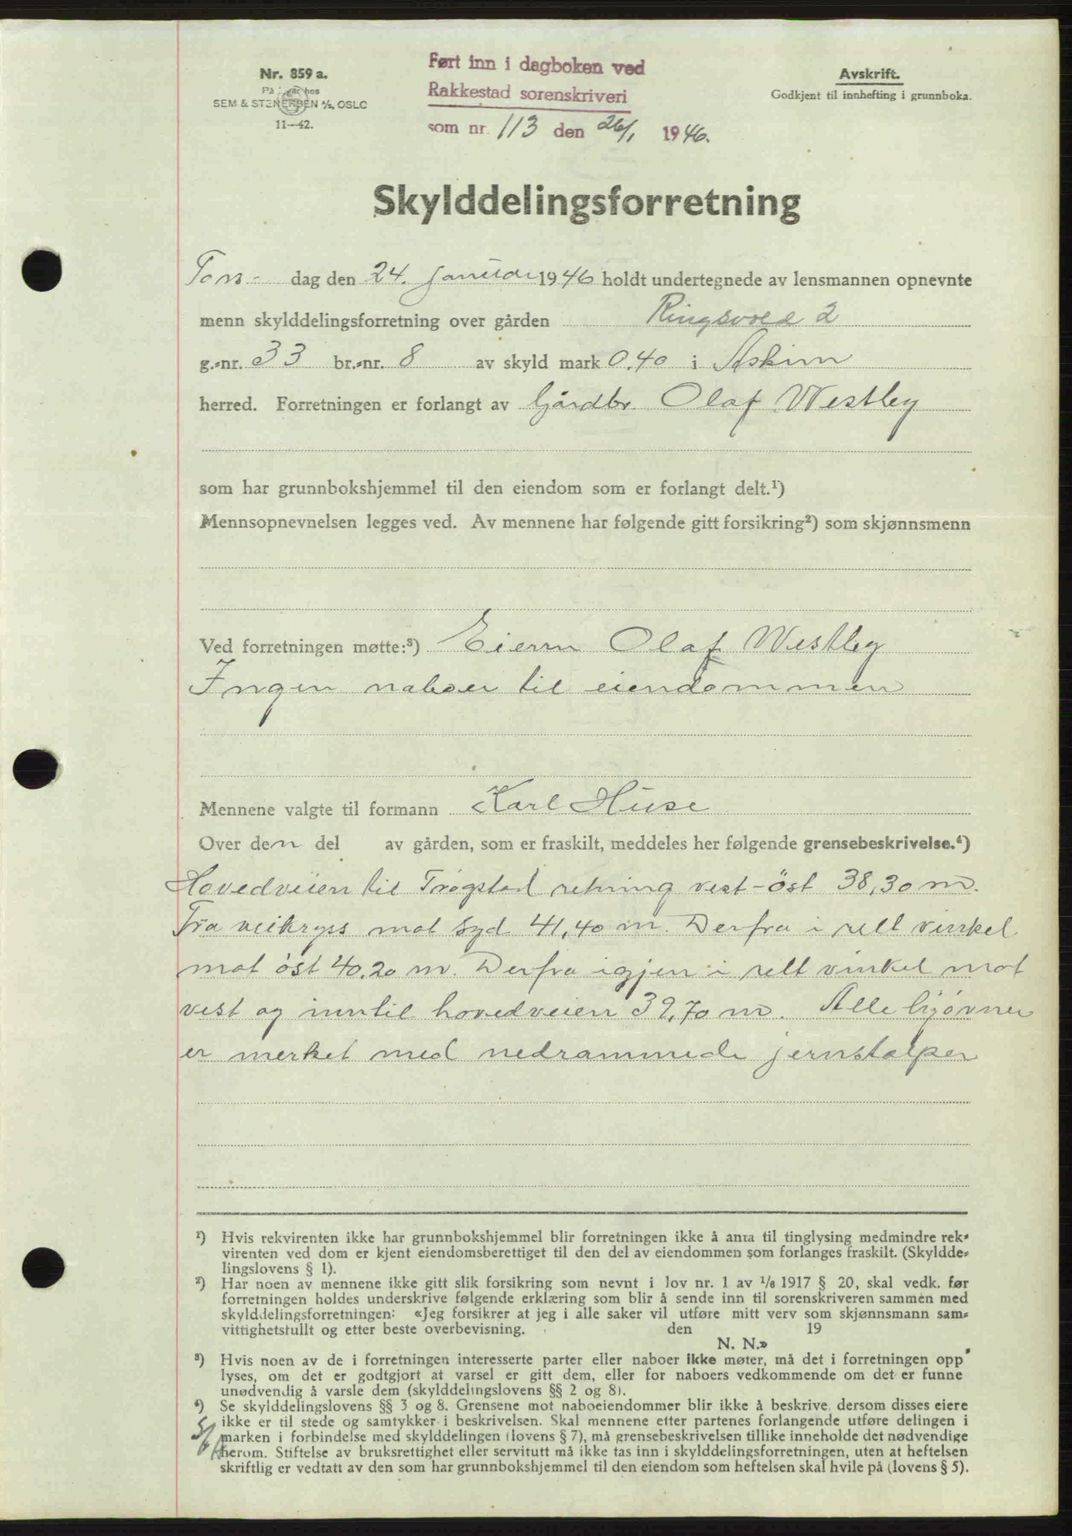 Nr. 859 a.
På lager hos
SEM & STENERSEN A/S, OSLO
11-42.
Ført inn i dagboken ved
Rakkestad sorenskriveri
som nr. 113 den 26/1 1946.
Avskrift.
Godkjent til innhefting i grunnboka.
Skylddelingsforretning
Tors- dag den 24. januar 1946 holdt undertegnede av lensmannen opnevnte
menn skylddelingsforretning over gården Ringsvold 2
g.-nr. 33 br.-nr. 8 av skyld mark 0.40 i Askim
herred. Forretningen er forlangt av Gårdbr. Olaf Westley
som har grunnbokshjemmel til den eiendom som er forlangt delt.¹)
Mennsopnevnelsen legges ved. Av mennene har følgende gitt forsikring²) som skjønnsmenn
Ved forretningen møtte:³) Eieren Olaf Westley
Ingen naboer til eiendommen
Mennene valgte til formann Karl Huse
Over den del av gården, som er fraskilt, meddeles her følgende grensebeskrivelse.⁴)
Hovedveien til Trøgstad retning vest-öst 38,30 m.
Fra veikryss mot syd 41,40 m. Derfra i rett vinkel
mot öst 40,20 m. Derfra igjen i rett vinkel mot
vest og inntil hovedveien 39,70 m. Alle hjövner
er merket med nedrammede jernstolper
¹) Hvis rekvirenten ikke har grunnbokshjemmel blir forretningen ikke å anta til tinglysing medmindre rek-
virenten ved dom er kjent eiendomsberettiget til den del av eiendommen som forlanges fraskilt. (Skyldde-
lingslovens § 1).
²) Har noen av mennene ikke gitt slik forsikring som nevnt i lov nr. 1 av 1/8 1917 § 20, skal vedk. før
forretningen holdes underskrive følgende erklæring som blir å sende inn til sorenskriveren sammen med
skylddelingsforretningen: «Jeg forsikrer at jeg i alle saker vil utføre mitt verv som skjønnsmann sam-
vittighetsfullt og etter beste overbevisning. den 19
N. N.»
³) Hvis noen av de i forretningen interesserte parter eller naboer ikke møter, må det i forretningen opp
lyses, om det er godtgjort at varsel er gitt dem, eller for naboers vedkommende om det er funne
unødvendig å varsle dem (skylddelingslovens §§ 2 og 8).
⁴) Se skylddelingslovens §§ 3 og 8. Grensene mot naboeiendommer blir ikke å beskrive, dersom disses eiere
ikke er til stede og samtykker i beskrivelsen. Skal mennene etter partenes forlangende utføre delingen i
marken i forbindelse med skylddelingen (lovens § 7), må grensebeskrivelsen tillike inneholde det nødvendige
herom. Stiftelse av bruksrettighet eller servitutt må ikke tas inn i skylddelingsforretningen, uten at heftelsen
skriftlig er vedtatt av den som har grunnbokshjemmel til den eiendom som heftelsen skal hvile på (lovens § 5).